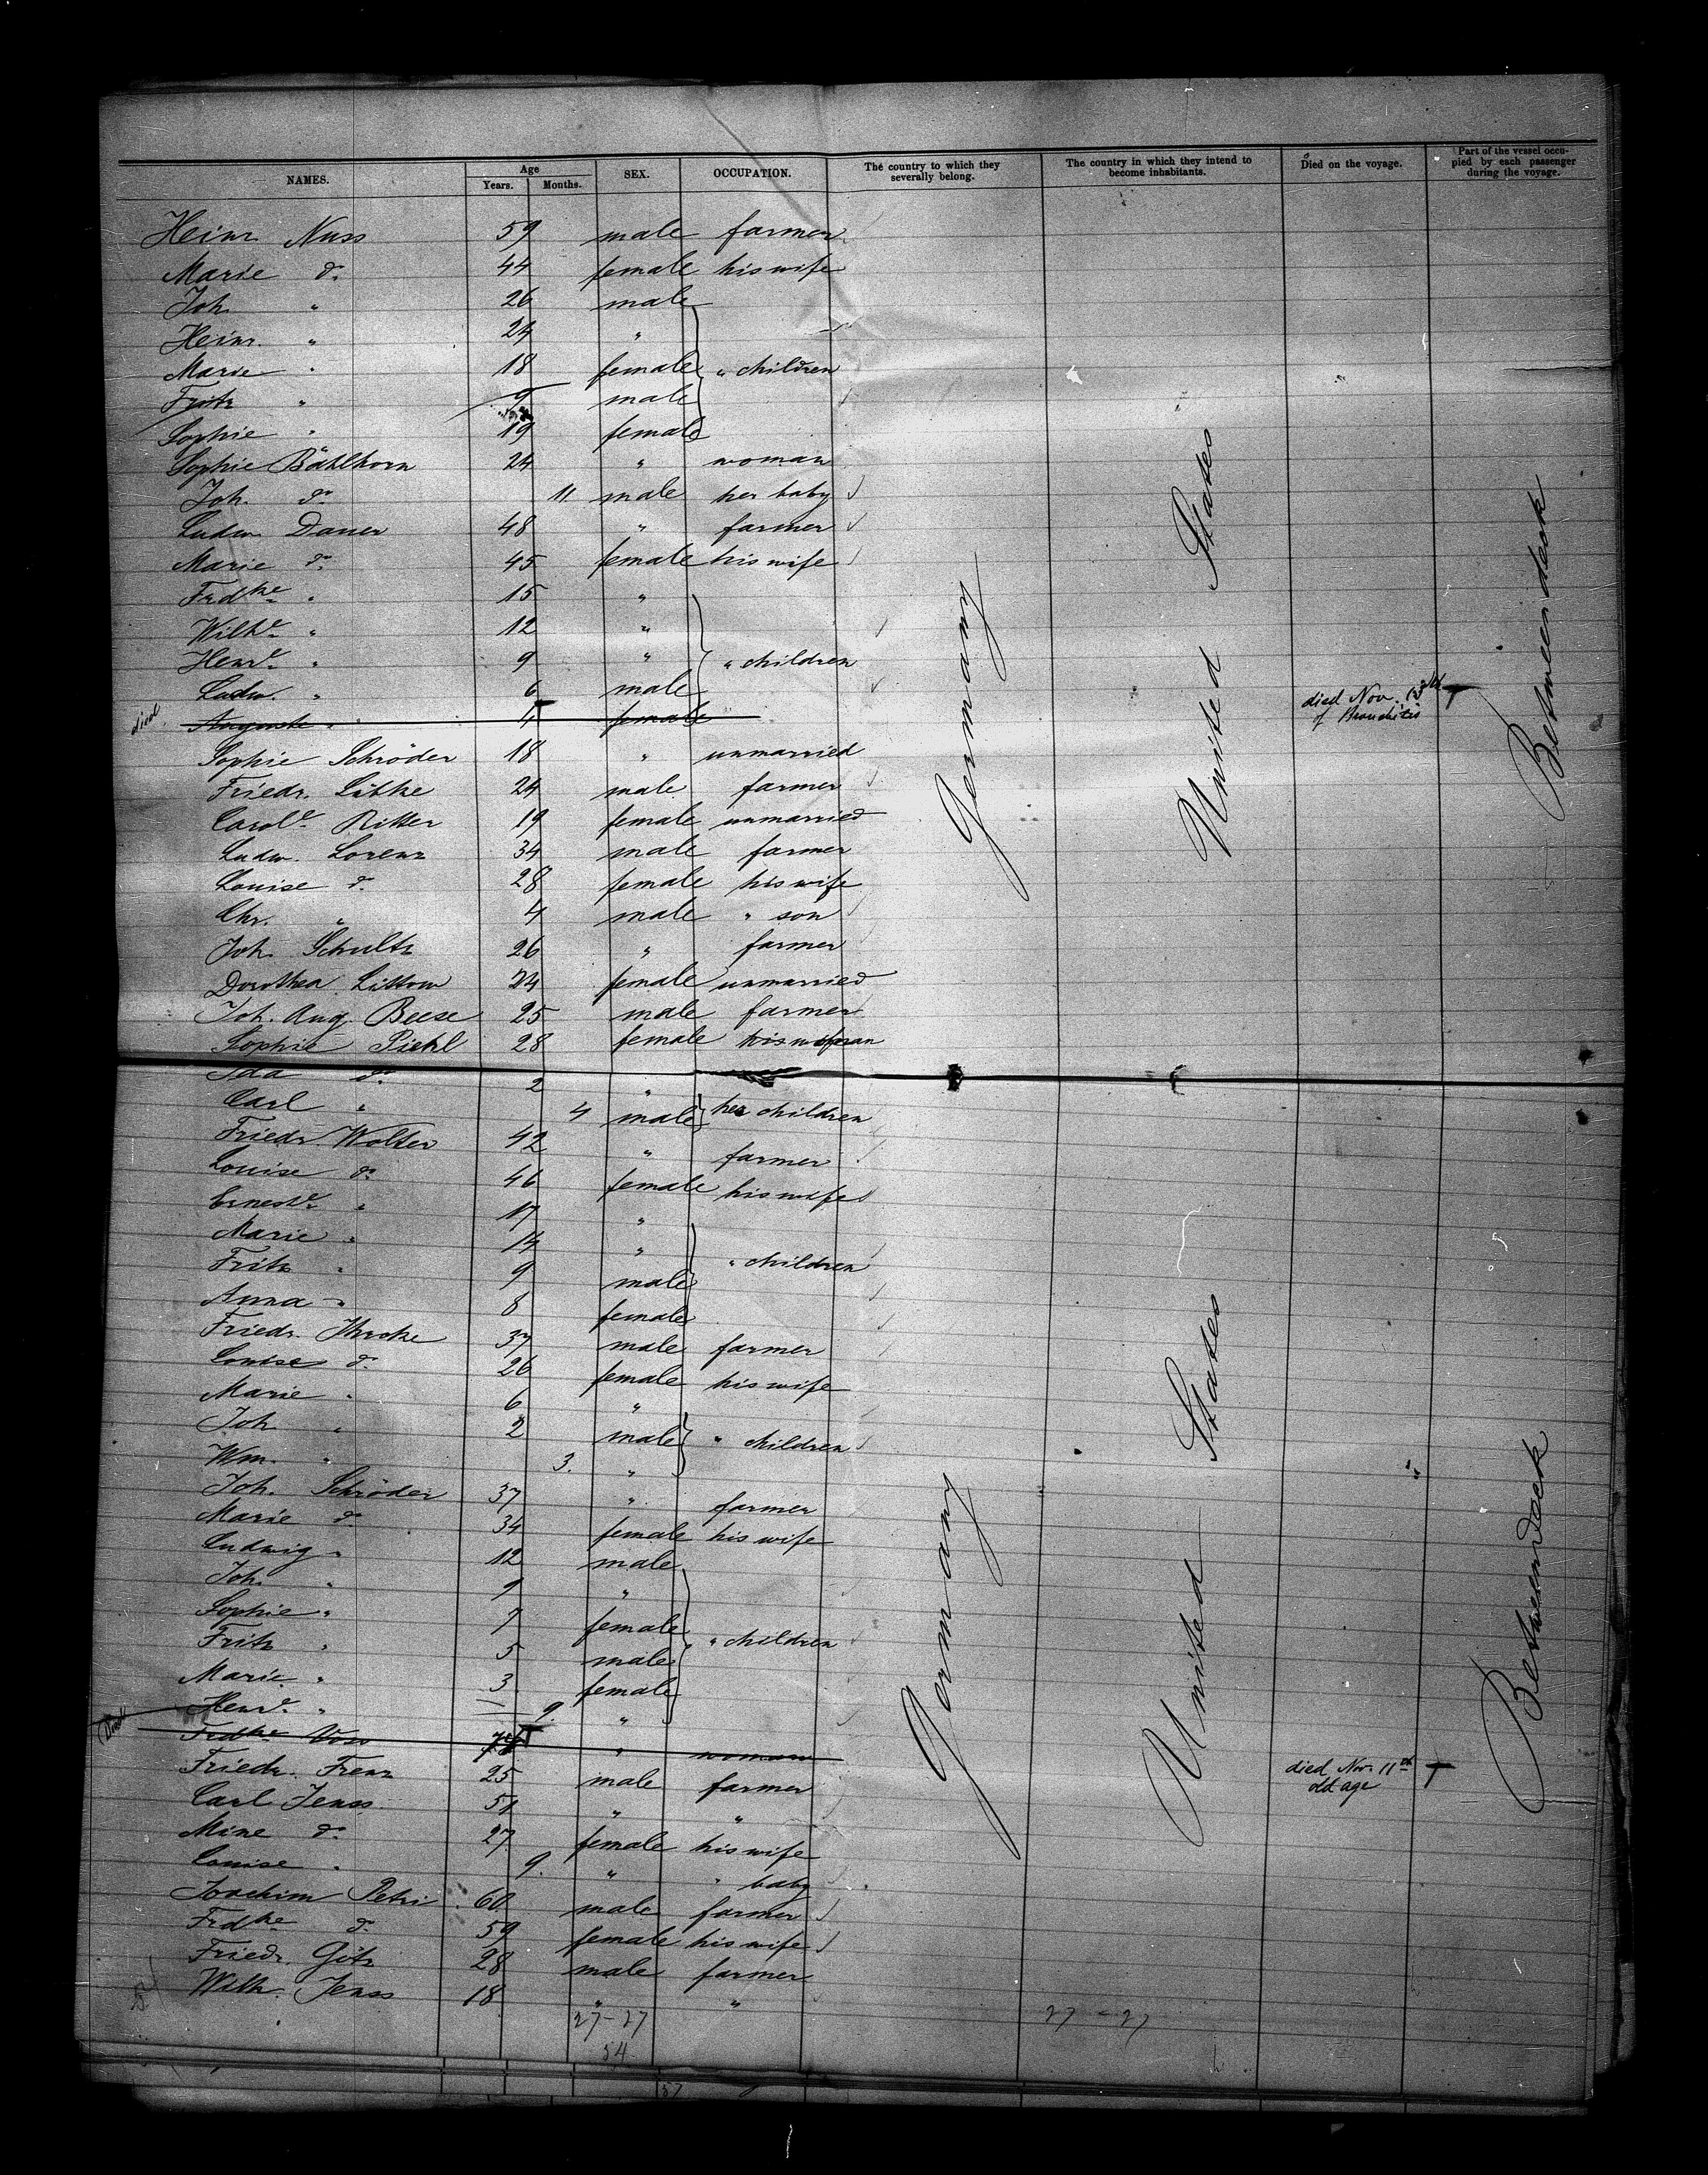 NAMES. Age Years. Months. SEX. OCCUPATION. The country to which they severally belong. The country in which they intend to become inhabitants. Died on the voyage. Part of the vessel occupied by each passenger during the voyage.
Heinr. Nuss 59 male farmer
Marie do. 44 female his wife
Joh. " 26 male
Heinr. " 24 "
Marie " 18 female " children
Fritz " 9 male
Sophie " 19 female
Sophie Bählhorn 24 " woman
Joh. do. 11 male her baby
Ludw. Dauer 48 " farmer
Marie do. 45 female his wife
Frdke " 15 "
Wilhe. " 12 "
Henre. " 9 " " children
Ludw. " 6 male
died Auguste " 4 female died Nov. 13th of Bronchitis
Sophie Schröder 18 " unmarried
Friedr. Lütke 24 male farmer
Carole. Ritter 19 female unmarried
Ludw. Lorenz 34 male farmer
Louise do. 28 female his wife
Chr. " 4 male " son
Joh. Schultz 26 " farmer
Dorothea Littow 24 female unmarried
Joh. Aug. Beese 25 male farmer
Sophie Piehl 28 female
Ida do. 2 "
Carl " 4 male her children
Friedr. Wolter 42 " farmer
Louise do. 46 female his wife
Erneste. " 17 "
Marie " 14 "
Fritz " 9 male " children
Anna " 8 female
Friedr. 37 male farmer
Louise do. 26 female his wife
Marie " 6 "
Joh. " 2 male " children
Wm. " 3. "
Joh. Schröder 37 " farmer
Marie do. 34 female his wife
Ludwig " 12 male
Joh. " 9 "
Sophie " 7 female
Fritz " 5 male " children
Marie " 3 female
Henre. " 9. "
Died Frdke Voss " woman died Nov. 11th old age
Friedr. Frenz 25 male farmer
Carl Jenss 51 " "
Mine do. 27 female his wife
Louise " 9. " " baby
Joachim Petri 60 male farmer
Frdke do. 59 female his wife
Friedr. Götz 28 male farmer
Wilh. Jenss 18 " "
27-27 27-27
54
57
Germany
United States
Betweendeck
Germany
United States
Betweendeck